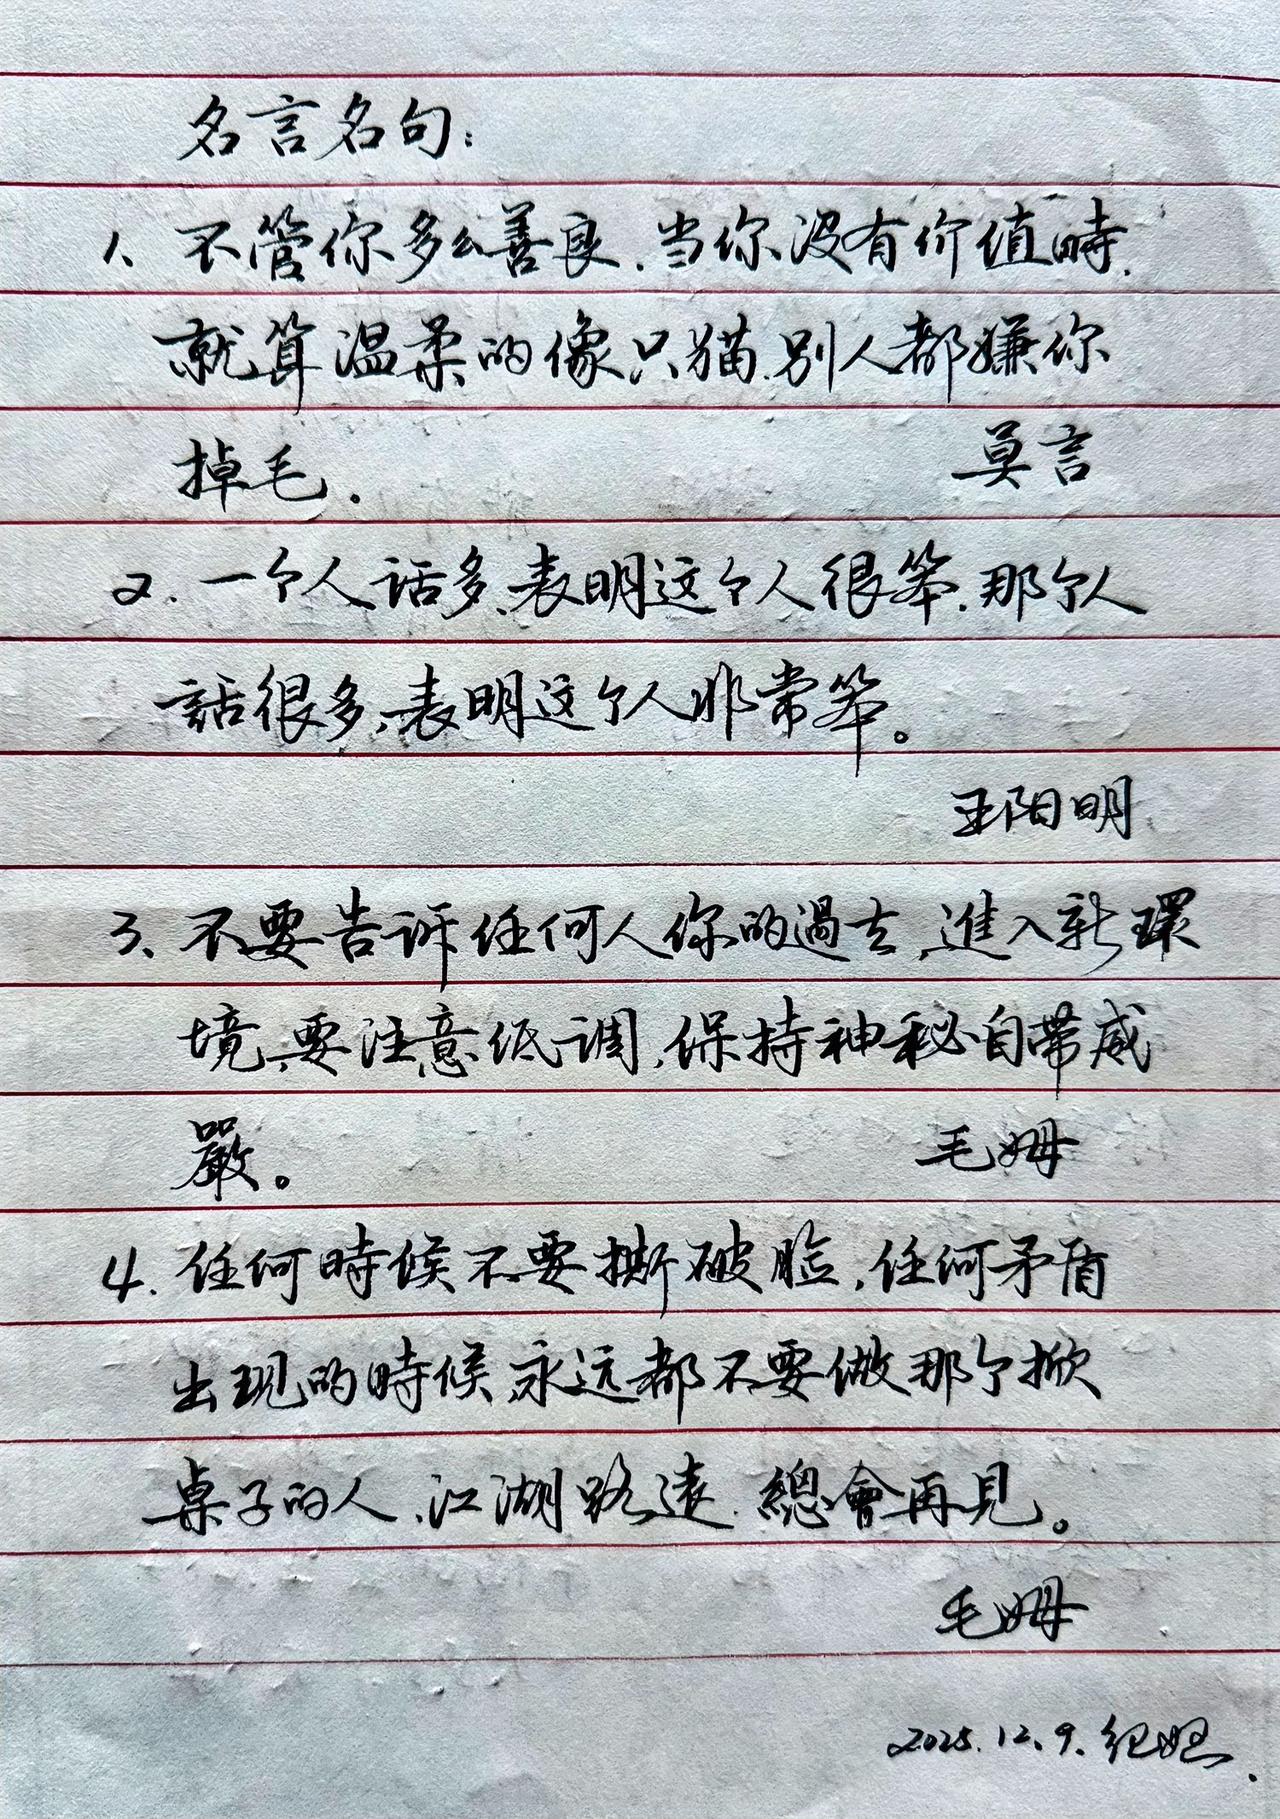 名言名句：
1、不管你多么善良.当你没有价值時.
就算温柔的像只猫.别人都嫌你
掉毛.
莫言
2.一个人话多、表明这个人很笨.那个人
話很多,表明这个人非常笨。
王阳明
3、不要告诉任何人你的過去,進入新環
境,要注意低调,保持神秘自带威
嚴。
毛姆
4.任何時候不要撕破脸,任何矛盾
出现的時候,永远都不要做那个掀
桌子的人,江湖路遠.總會再見。
毛姆
2025.12.9.